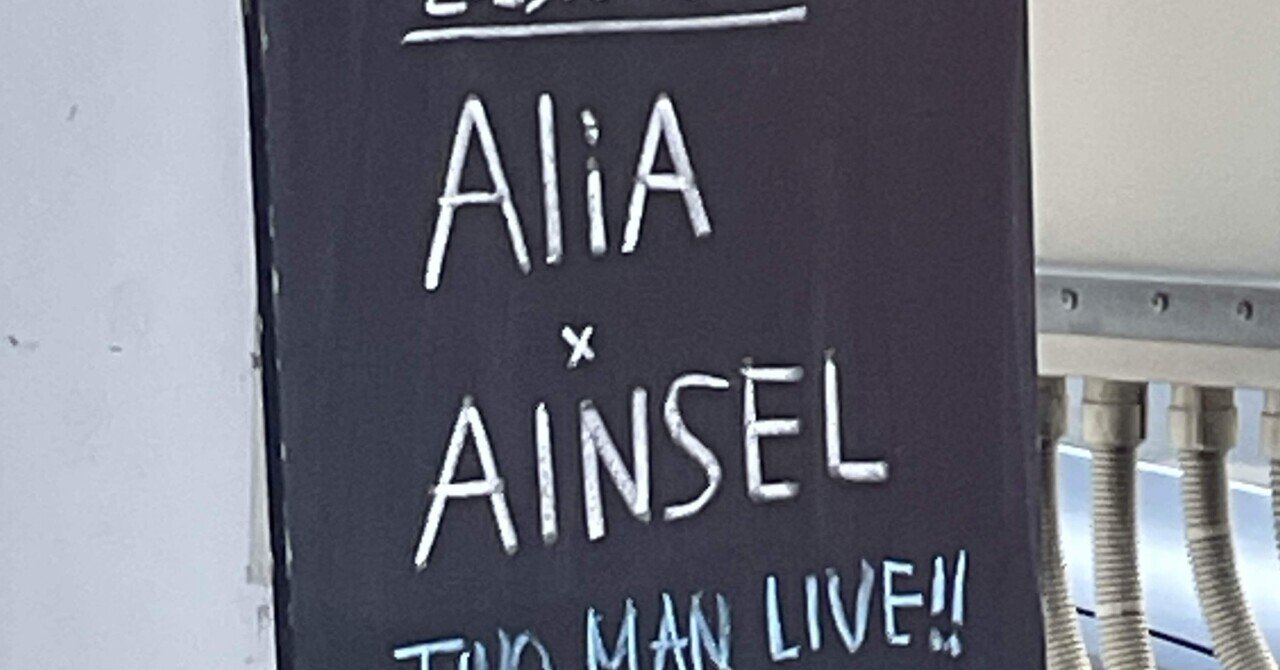 AliA
x
AINSEL
TWO MAN LIVE!!